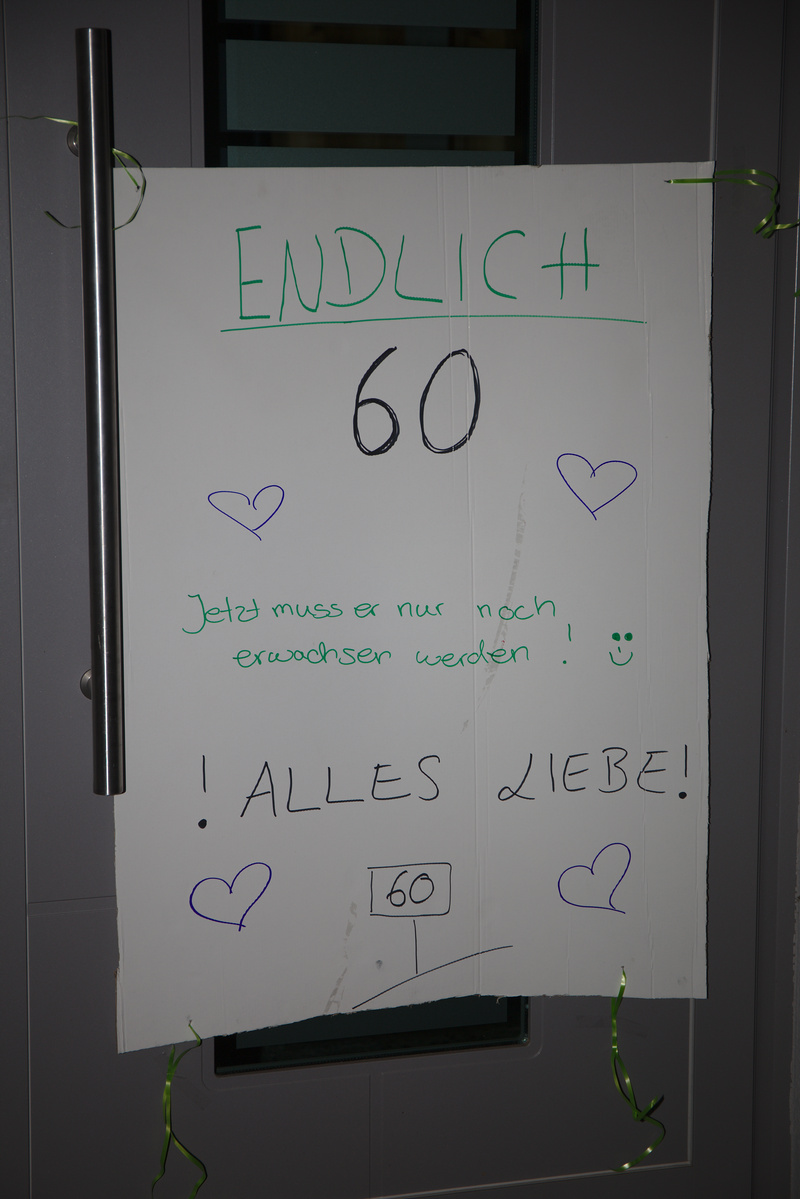 ENDLICH
60
Jetzt muss er nur noch
erwachsen werden !
! ALLES LIEBE!
60